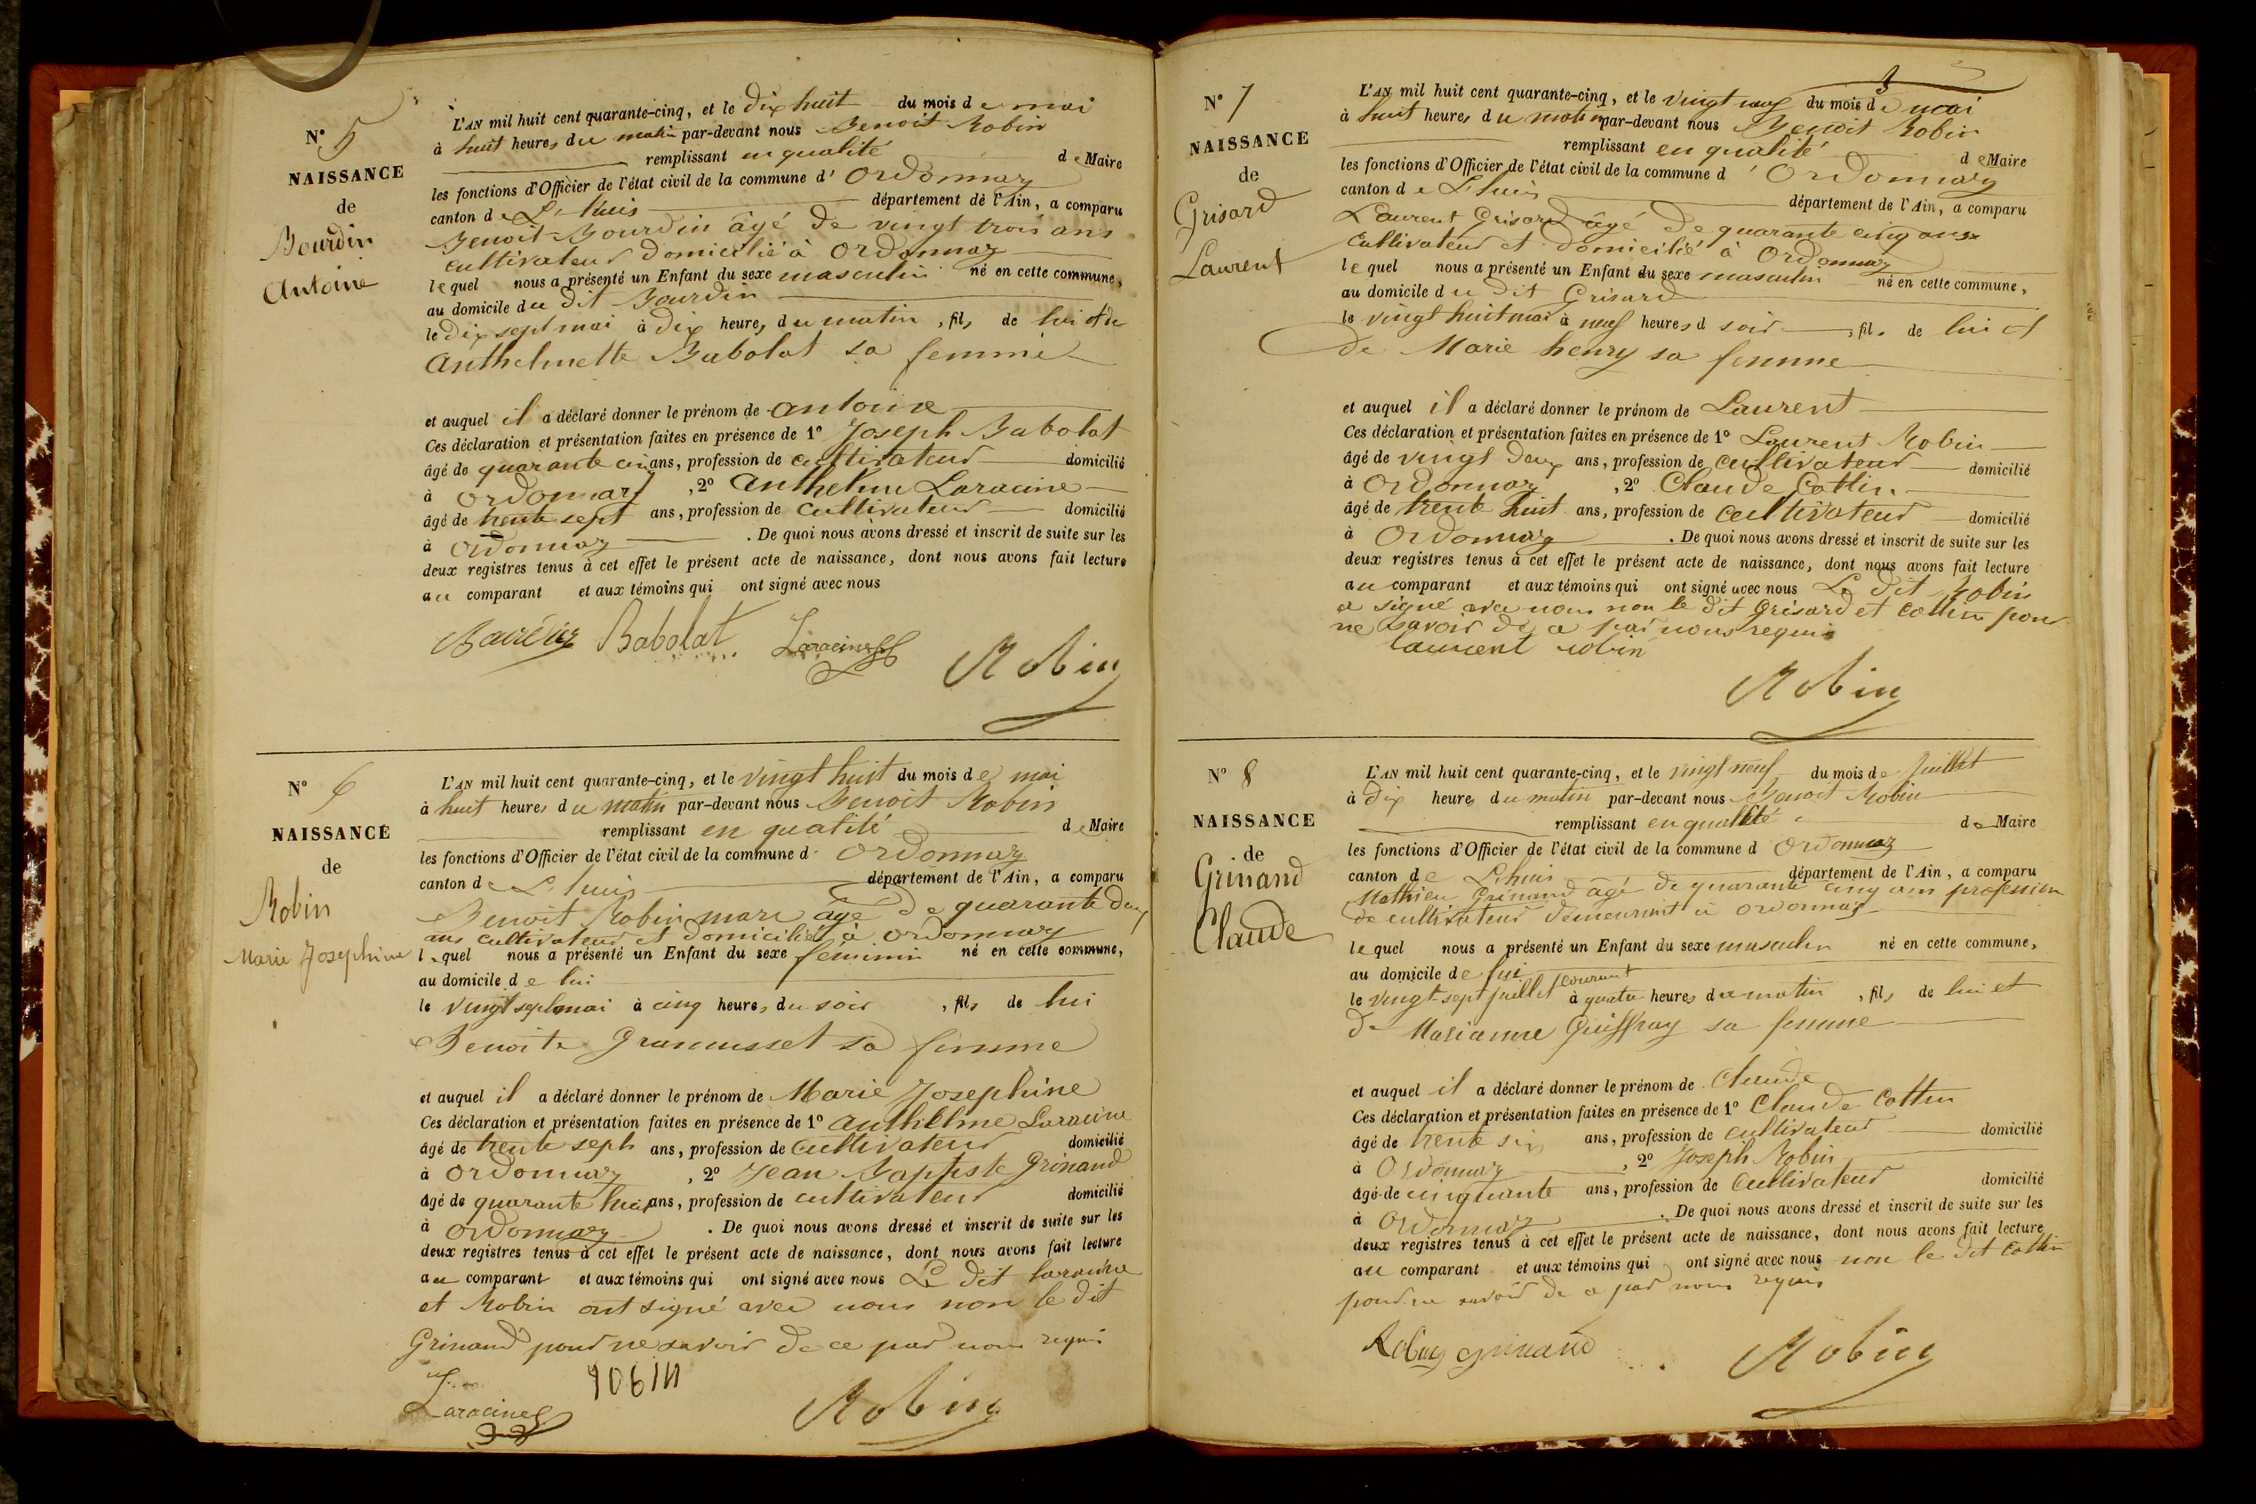 N° 5
NAISSANCE
de
Bourdin
Antoine
L'AN mil huit cent quarante-cinq, et le dix huit du mois de mai
à huit heures du matin par-devant nous Benoit Robin
remplissant en qualité de Maire
les fonctions d'Officier de l'état civil de la commune d' Ordonnaz
canton de L'huis département de l'Ain, a comparu
Benoit Bourdin âgé de vingt trois ans
cultivateur domicilié à Ordonnaz
lequel nous a présenté un Enfant du sexe masculin né en cette commune,
au domicile du dit Bourdin
le dix sept mai à dix heures du matin, fils de lui et de
Anthelmette Babolat sa femme
et auquel il a déclaré donner le prénom de Antoine
Ces déclaration et présentation faites en présence de 1° Joseph Babolat
âgé de quarante cinq ans, profession de cultivateur domicilié
à Ordonnaz, 2° Anthelme Laracine
âgé de trente sept ans, profession de cultivateur domicilié
à Ordonnaz. De quoi nous avons dressé et inscrit de suite sur les
deux registres tenus à cet effet le présent acte de naissance, dont nous avons fait lecture
au comparant et aux témoins qui ont signé avec nous
Babolat Laracine Robin
N° 6
NAISSANCE
de
Robin
Marie Josephine
L'AN mil huit cent quarante-cinq, et le vingt huit du mois de mai
à huit heures du matin par-devant nous Benoit Robin
remplissant en qualité de Maire
les fonctions d'Officier de l'état civil de la commune d' Ordonnaz
canton de L'huis département de l'Ain, a comparu
Benoit Robin maire âgé de quarante deux
ans cultivateur et domicilié à Ordonnaz
lequel nous a présenté un Enfant du sexe feminin né en cette commune,
au domicile de lui
le vingt sept mai à cinq heures du soir, fils de lui
Benoite sa femme
et auquel il a déclaré donner le prénom de Marie Josephine
Ces déclaration et présentation faites en présence de 1° Anthelme Laracine
âgé de trente sept ans, profession de cultivateur domicilié
à Ordonnaz, 2° Jean Baptiste Grinand
âgé de quarante huit ans, profession de cultivateur domicilié
à Ordonnaz. De quoi nous avons dressé et inscrit de suite sur les
deux registres tenus à cet effet le présent acte de naissance, dont nous avons fait lecture
au comparant et aux témoins qui ont signé avec nous Le dit laracine
et Robin ont signé avec nous non le dit
Grinand pour ne savoir de ce par nous requis
Laracine Robin
N° 7
NAISSANCE
de
Grisard
Laurent
L'AN mil huit cent quarante-cinq, et le vingt neuf du mois de mai
à huit heures du matin par-devant nous Benoit Robin
remplissant en qualité de Maire
les fonctions d'Officier de l'état civil de la commune d' Ordonnaz
canton de L'huis département de l'Ain, a comparu
Laurent Grisard âgé de quarante cinq ans
cultivateur et domicilié à Ordonnaz
lequel nous a présenté un Enfant du sexe masculin né en cette commune,
au domicile du dit Grisard
le vingt huit mai à neuf heures d soir, fils de lui et
de Marie henry sa femme
et auquel il a déclaré donner le prénom de Laurent
Ces déclaration et présentation faites en présence de 1° Laurent Robin
âgé de vingt deux ans, profession de cultivateur domicilié
à Ordonnaz, 2° Claude Cottin
âgé de trente huit ans, profession de cultivateur domicilié
à Ordonnaz. De quoi nous avons dressé et inscrit de suite sur les
deux registres tenus à cet effet le présent acte de naissance, dont nous avons fait lecture
au comparant et aux témoins qui ont signé avec nous Le dit Robin
a signé avec nous non le dit Grisard et Cottin pour
ne savoir de ce par nous requis
laurent robin
Robin
N° 8
NAISSANCE
de
Grinand
Claude
L'AN mil huit cent quarante-cinq, et le vingt neuf du mois de Juillet
à dix heures du matin par-devant nous Benoit Robin
remplissant en qualité de Maire
les fonctions d'Officier de l'état civil de la commune d Ordonnaz
canton de L'huis département de l'Ain, a comparu
Mathieu Grinand âgé de quarante cinq ans profession
de cultivateur demeurant à Ordonnaz
lequel nous a présenté un Enfant du sexe masculin né en cette commune,
au domicile de lui
le vingt sept juillet courant à quatre heures du matin, fils de lui et
de Marianne Guiffray sa femme
et auquel il a déclaré donner le prénom de Claude
Ces déclaration et présentation faites en présence de 1° Claude Cottin
âgé de trente six ans, profession de cultivateur domicilié
à Ordonnaz, 2° Joseph Robin
âgé de cinquante ans, profession de cultivateur domicilié
à Ordonnaz. De quoi nous avons dressé et inscrit de suite sur les
deux registres tenus à cet effet le présent acte de naissance, dont nous avons fait lecture
au comparant et aux témoins qui ont signé avec nous non le dit Cottin
pour ne savoir de ce par nous requis
Robin grinand Robin